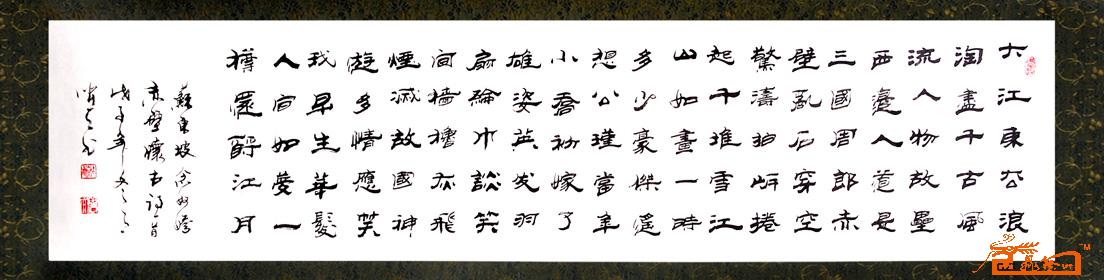 大江東去浪
淘盡千古風
流人物故壘
西邊人道是
三國周郎赤
壁亂石穿空
驚濤拍岍捲
起千堆雪江
山如畫一時
多少豪傑遙
想公瑾當年
小喬初嫁了
雄姿英发羽
扇綸巾談笑
間檣櫓灰飛
煙滅故國神
遊多情應笑
我早生華髮
人間如夢一
樽還酹江月
蘇東坡念奴嬌
赤壁懷古詞一首
戊子年